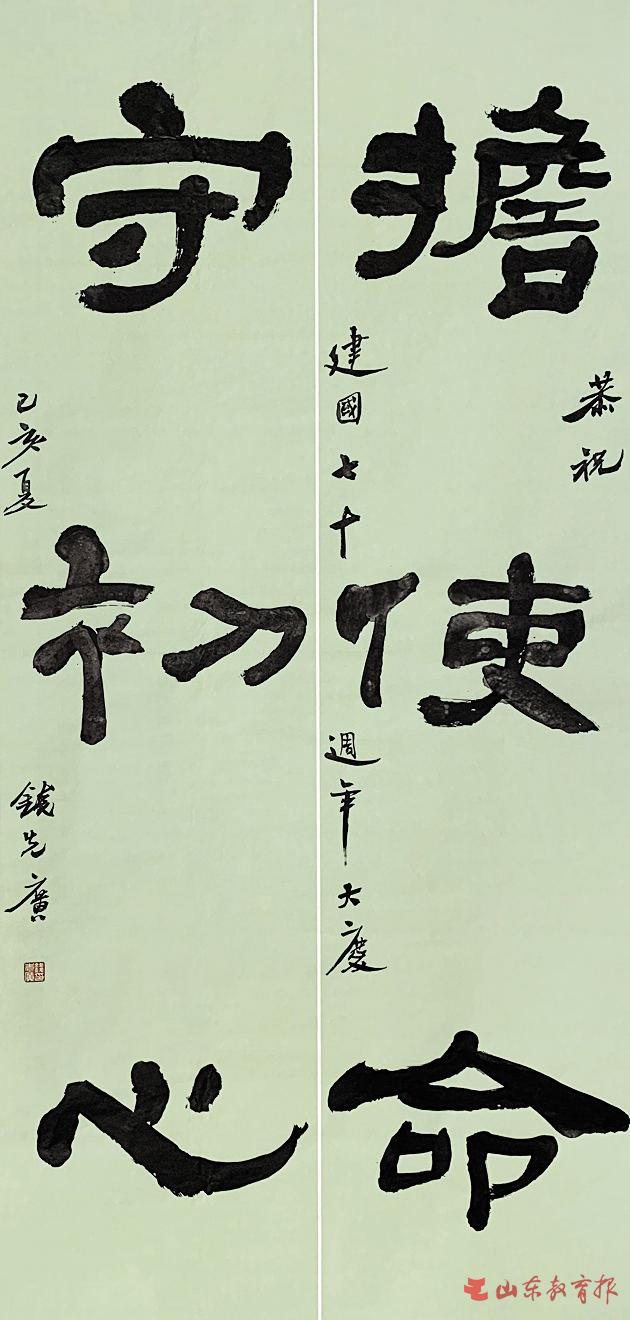 擔使命
恭祝
建國七十週年大慶
守初心
己亥夏
錢先廣
山东教育报